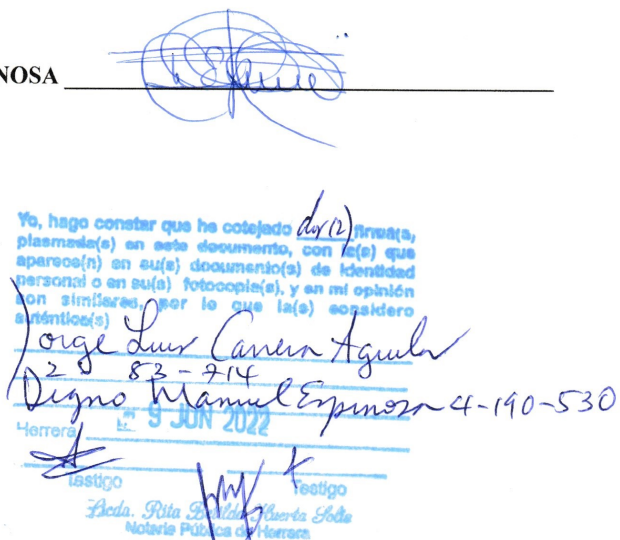 NOSA
Yo, hago constar que he cotejado dos (2) firma(s,
plasmada(s) en este documento, con la(s) que
aparece(n) en su(s) documento(s) de identidad
personal o en su(s) fotocopia(s), y en mi opinión
son similares, por lo que la(s) considero
auténtica(s)
Jorge Luis Carrera Aguilar
2 83-714
Digno Manuel Espinosa 4-190-530
Herrera 9 JUN 2022
Testigo Testigo
Licda. Rita Huerta Solís
Notaria Pública de Herrera